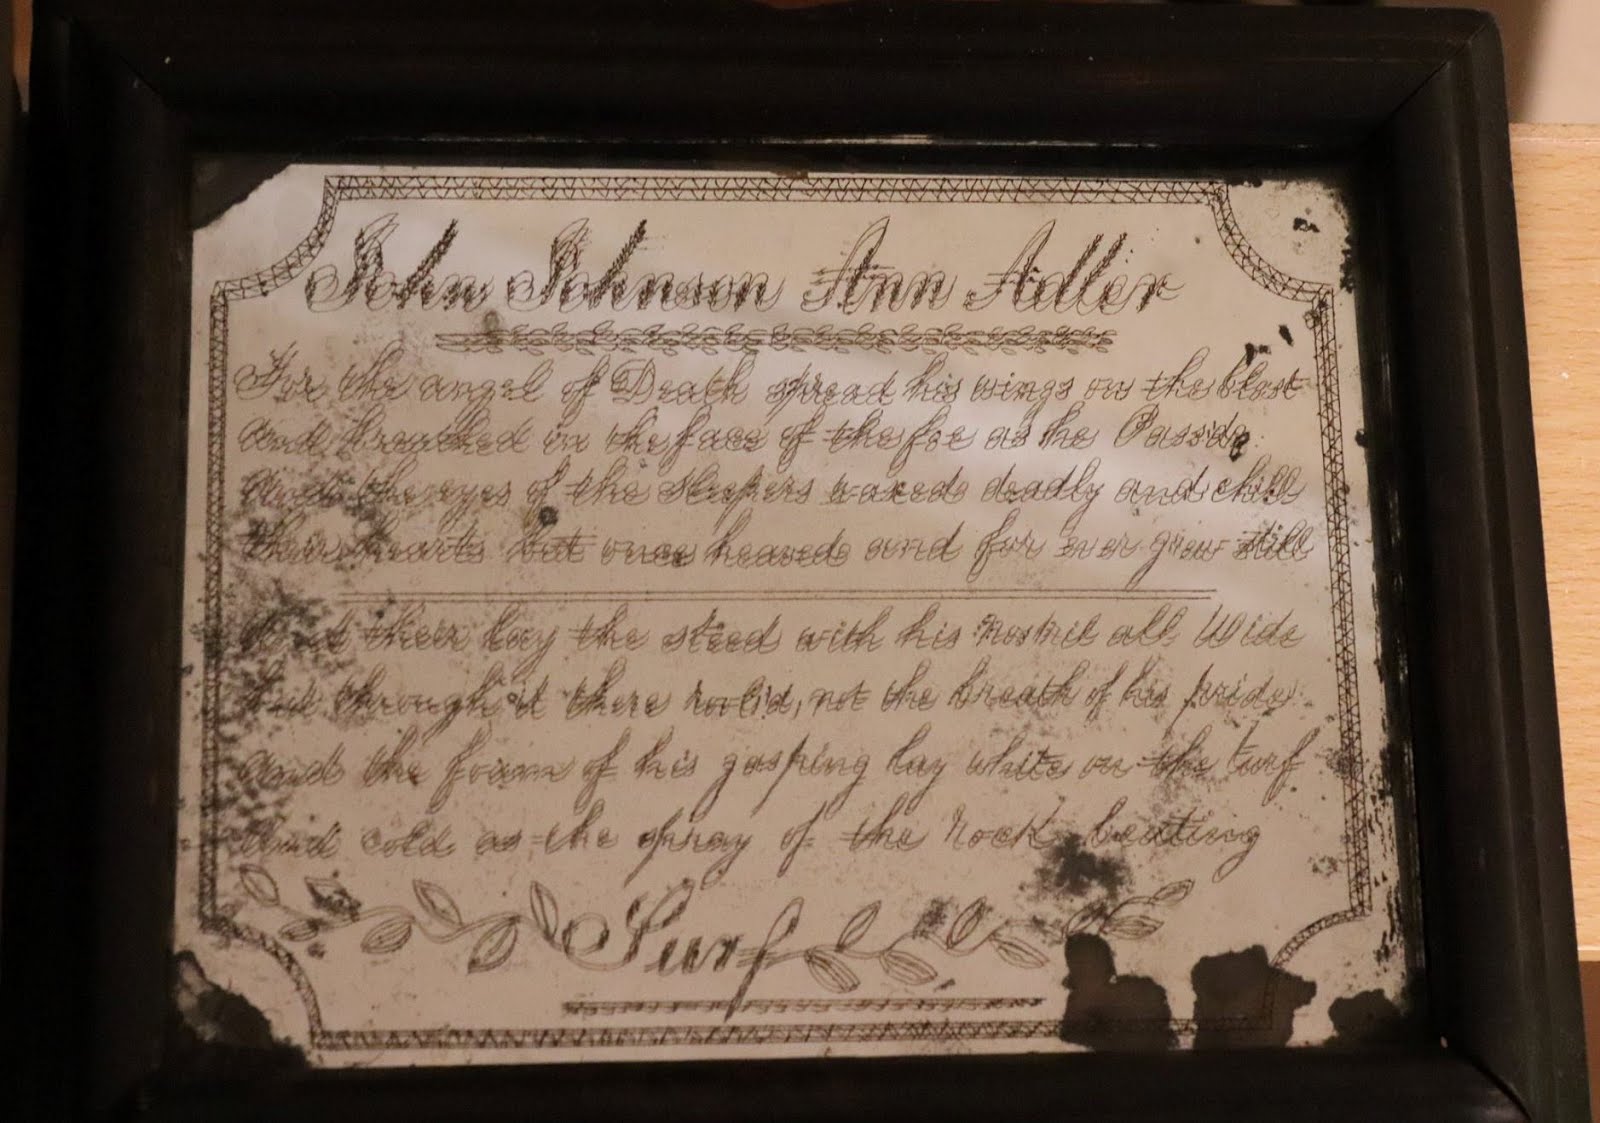 John Johnson Ann Adler
For the angel of Death spread his wings on the blast
and breathed in the face of the foe as he Passide
and the eyes of the sleepers waxede deadly and chill
their hearts but once heavede and for ever grew still
And their lay the steed with his nostril all Wide
but through it there rolid, not the breath of his pride
and the foam of his gasping lay white on the turf
and cold as the spray of the rock beating
Surf